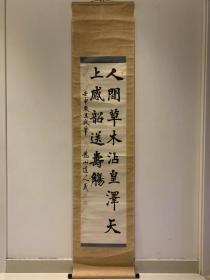 人間草木沾皇澤天
上咸韶送壽觴